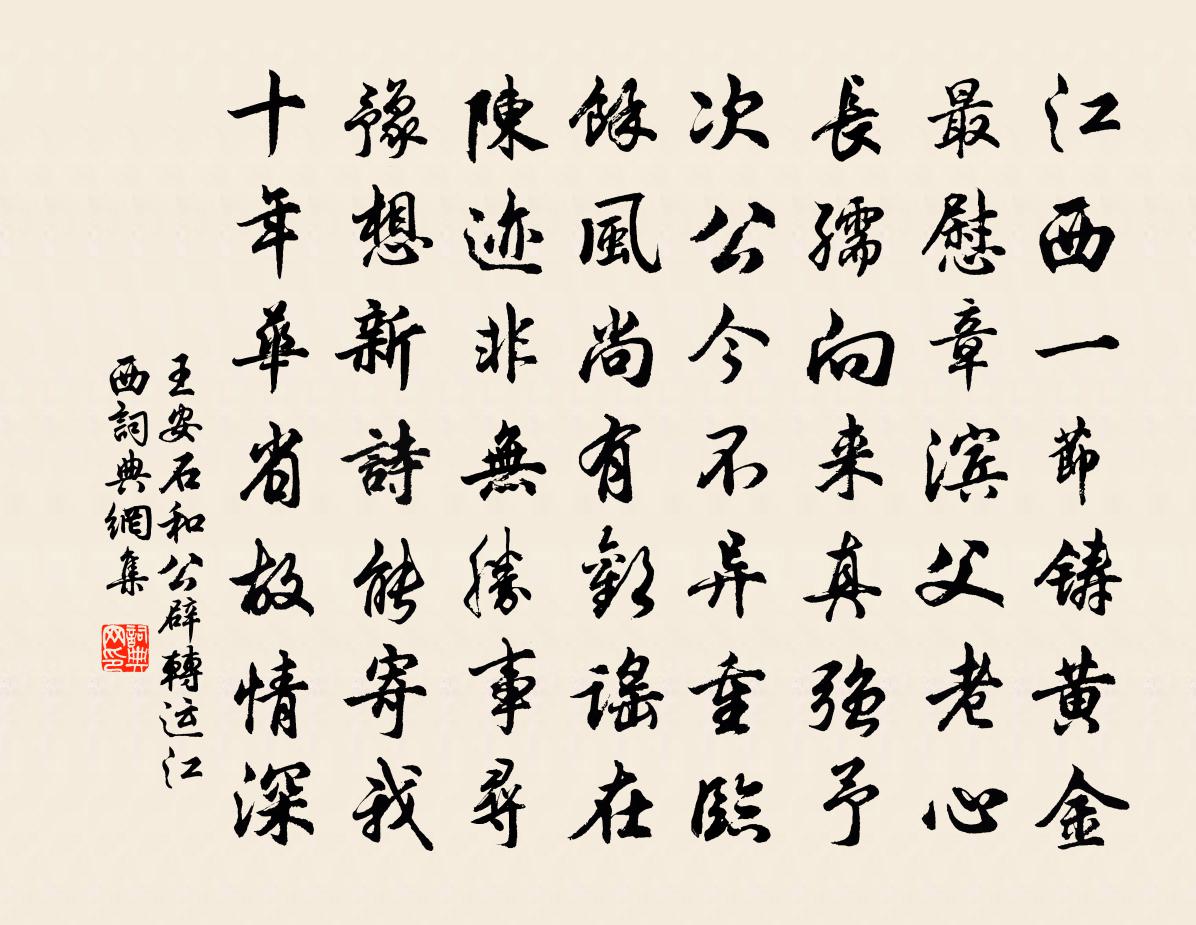 江西一節铸黄金
最慰章滨父老心
長孺向来真强予
次公今不异重臨
餘風尚有歡謠在
陳迹非無勝事尋
豫想新詩能寄我
十年華省故情深
王安石和公辟轉运江
西詞典網集
詞典网印